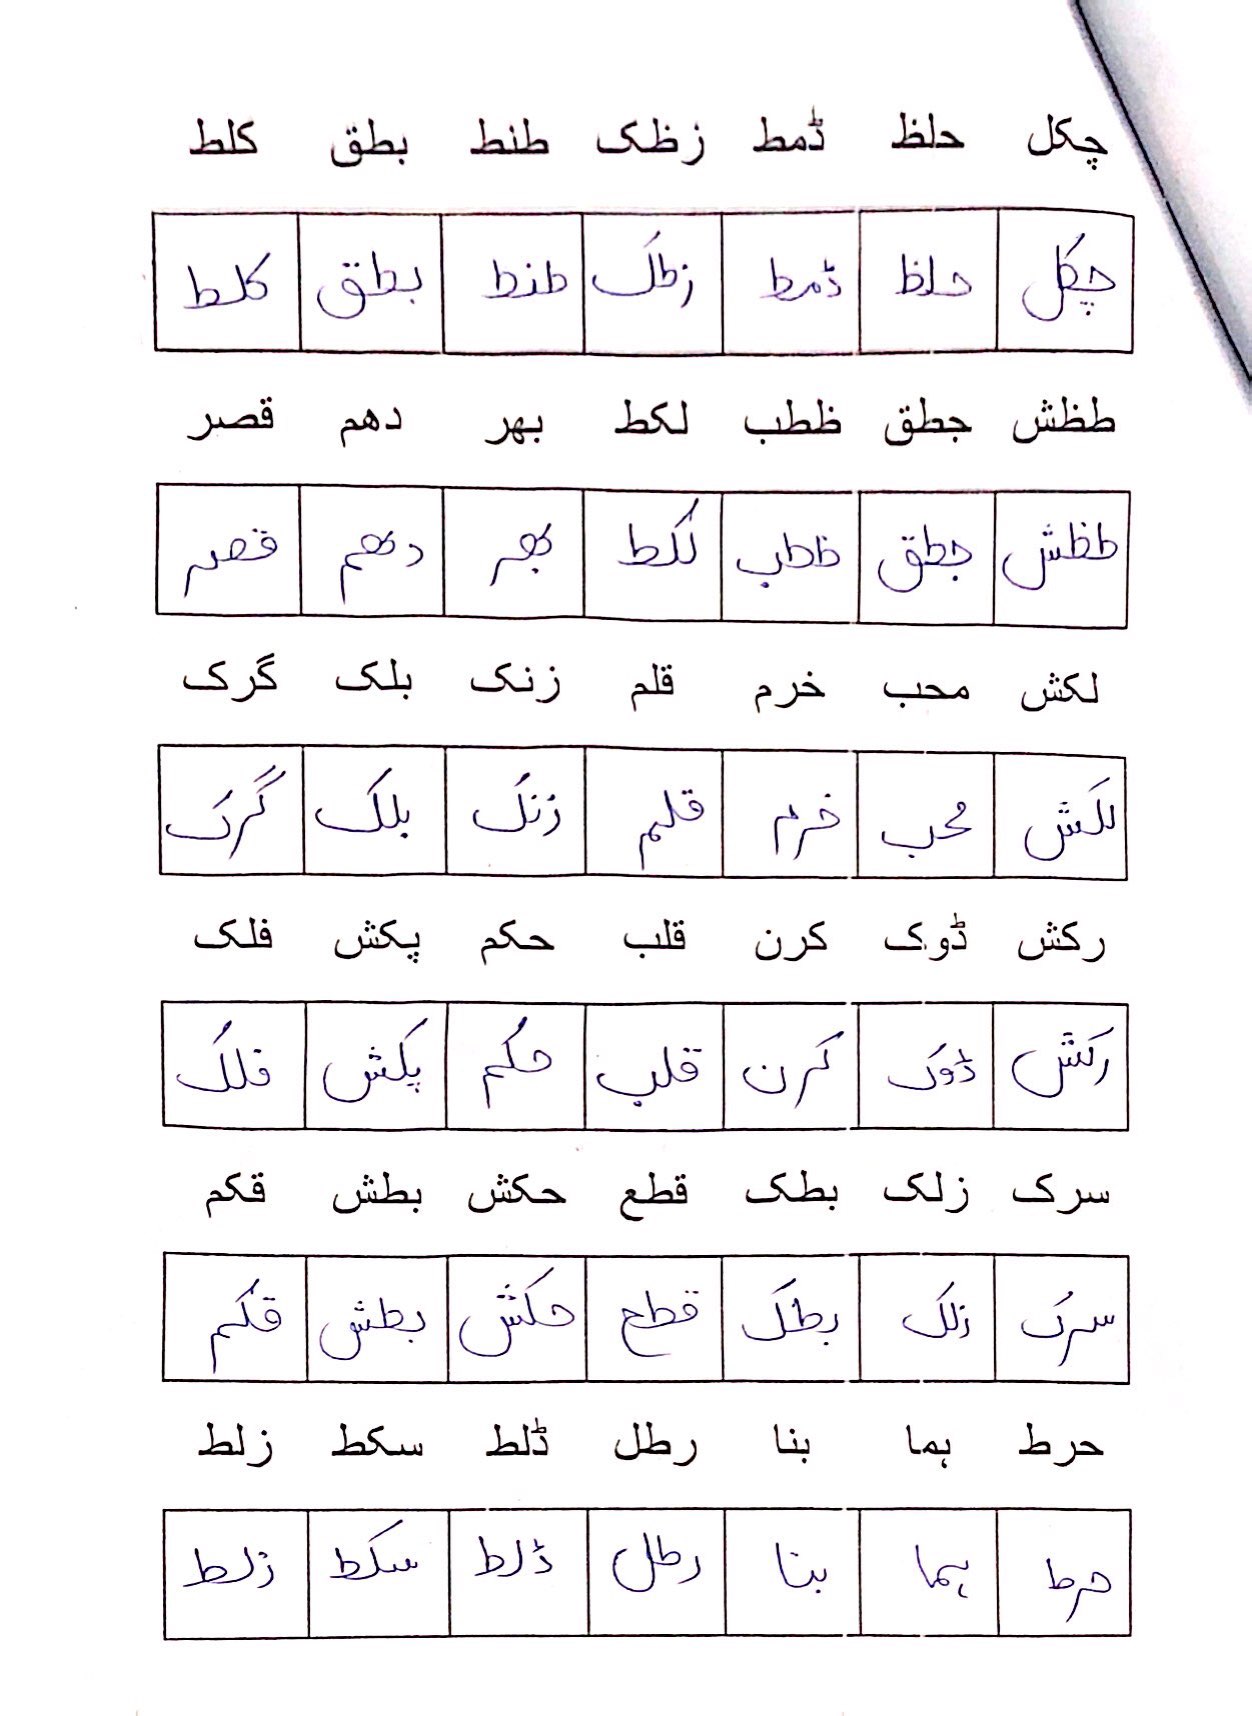 چکل حلظ ڈمط زظک طنط بطق کلط
چکل حلظ ڈمط زطک طنط بطق کلط
طظش جطق ظطب لکط بھر دھم قصر
طظش جطق ظطب لکط بھر دھم قصر
لکش محب خرم قلم زنک بلک گرک
لکش محب خرم قلم زنک بلک گرک
رکش ڈوک کرن قلب حکم پکش فلک
رکش ڈوک کرن قلب حکم پکش فلک
سرک زلک بطک قطع حکش بطش قکم
سرک زلک بطک قطع حکش بطش قکم
حرط ہما بنا رطل ڈلط سکط زلط
حرط ہما بنا رطل ڈلط سکط زلط